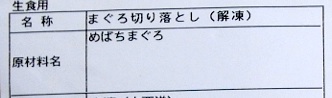 生食用
名称 まぐろ切り落とし（解凍）
原材料名 めばちまぐろ